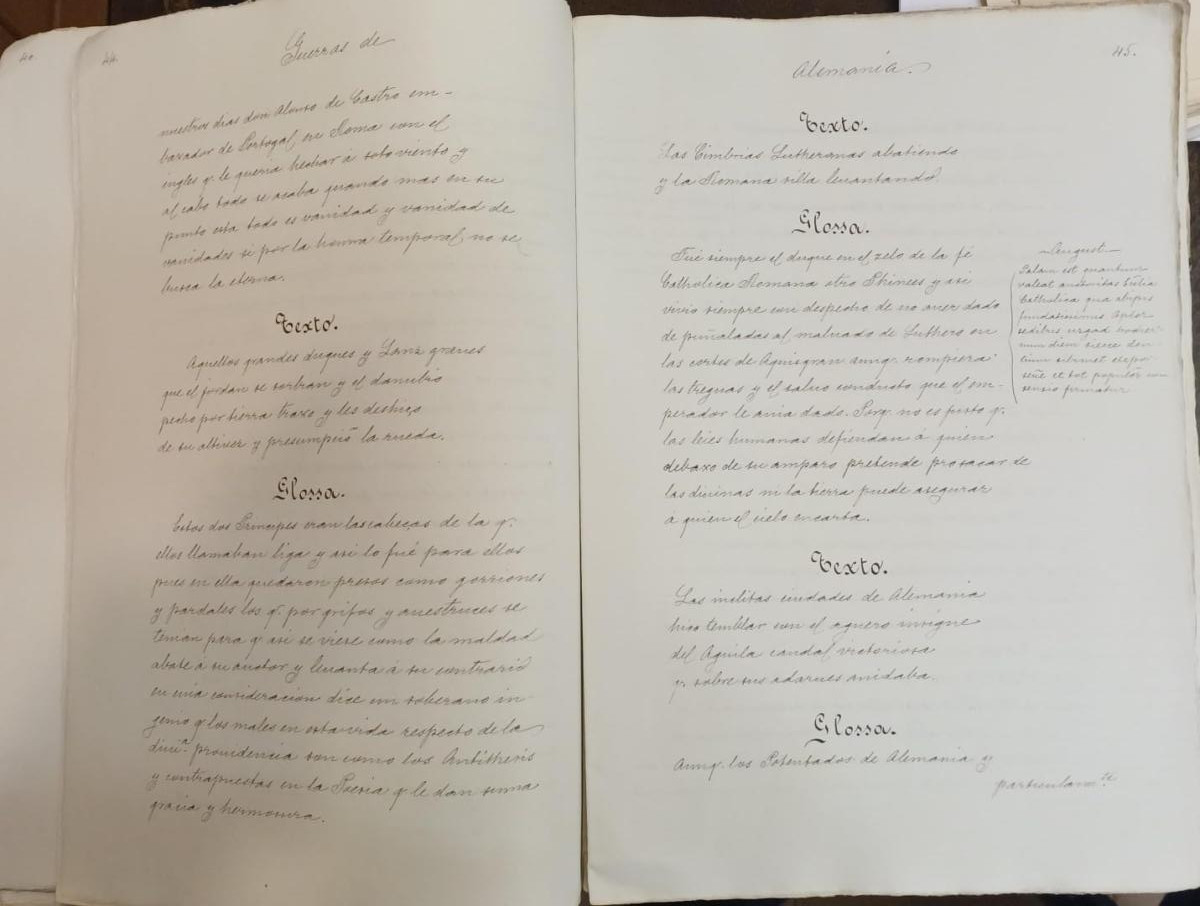 40.
44.
Guerras de
nuestros dias don Alonso de Castro em-
baxador de Portogal, en Roma con el
ingles q. le queria hechar á sotoviento y
al cabo todo se acaba quando mas en su
punto esta todo es vanidad y vanidad de
vanidades si por la honrra temporal, no se
busca la eterna.
Texto.
Aquellos grandes duques y Lanz graves
que el jordan se sorbian y el danubio
pecho por tierra traxo y les deshizo
de su altivez y presumpcion la rueda.
Glossa.
Estos dos Principes eran las cabeças de la q.
ellos llamaban liga y asi lo fué para ellos
pues en ella quedaron presos como gorriones
y pardales los q. por grifos y auestruces se
tenian para q. asi se viese como la maldad
abate á su auctor y leuanta á su contrario
en cuia consideracion dice un soberano in
genio q. los males en esta vida respecto de la
diuina providencia son como los Antithesis
y contrapuestas en la Poesia q. le dan summa
gracia y hermosura.
45.
Alemania.
Texto.
Las Cimbrias Lutheranas abatiendo
y la Romana silla leuantando.
Glossa.
Fué siempre el duque en el zelo de la fé
Catholica Romana otro Phinees y asi
vivio siempre con despecho de no auer dado
de puñaladas al maluado de Luthero en
las cortes de Aquisgran aunq. rompiera
las treguas y el saluo conducto que el em-
perador le auia dado. Porq. no es justo q.
las leies humanas defiendan á quien
debaxo de su amparo pretende provacar de
las diuinas ni la tierra puede asegurar
á quien el cielo encarta.
August
Palam est quantum
valeat auctoritas
Catholica qua abipis
fundatissimis
sedibus usqad hodier
num diem
populor con
sensio firmatur
Texto.
Las inclitas ciudades de Alemania
hizo temblar con el aguero insigne
del Aguila caudal victoriosa
q. sobre sus adarues anidaba.
Glossa.
Aunq. los Potentados de Alemania y
particularmte